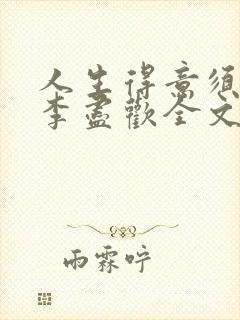 人生得意須
李盡歡全文
雨霖咛